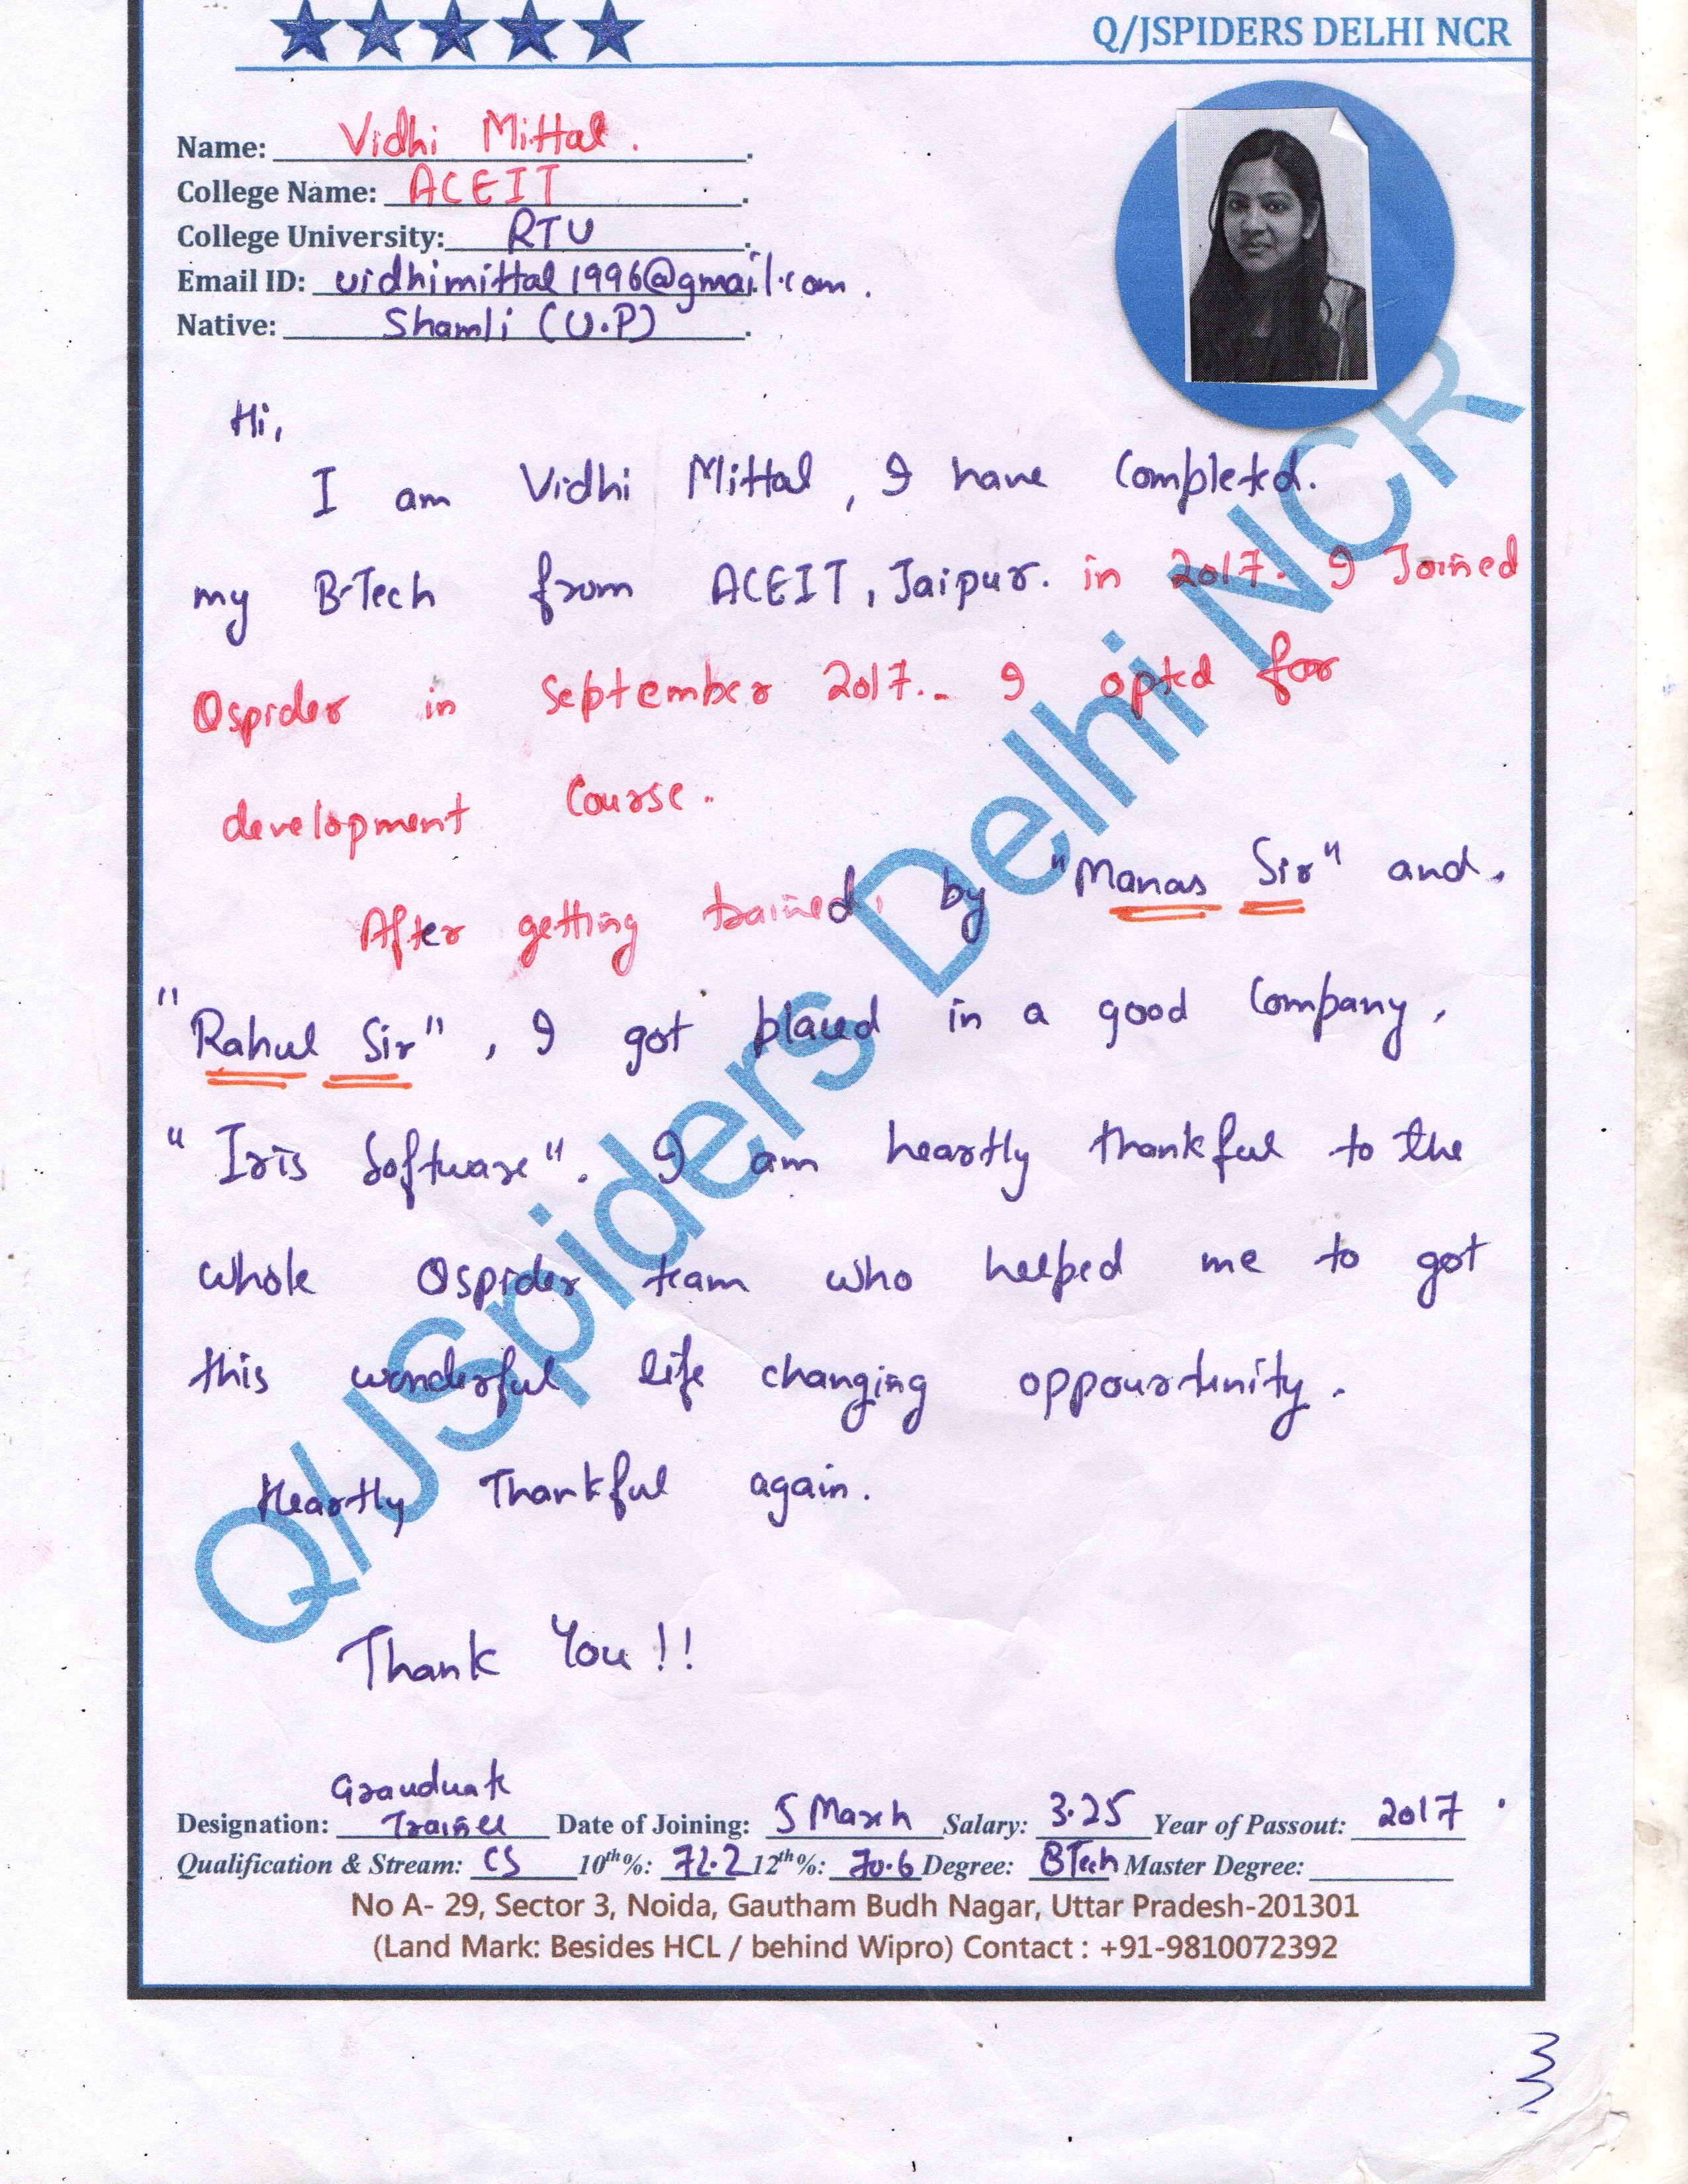 Q/JSPIDERS DELHI NCR
Name: Vidhi Mittal.
College Name: ACEIT.
College University: RTU.
Email ID: vidhimittal1996@gmail.com.
Native: Shamli (U.P).
Hi,
I am Vidhi Mittal, I have Completed.
my B-Tech from ACEIT, Jaipur. in 2017. I Joined
Qspider in September 2017.. I opted for
development Course..
After getting trained, by "Manas Sir" and.
"Rahul Sir", I got placed in a good Company,
"Iris Software". I am heartly thankful to the
whole Qspider team who helped me to got
this wonderful life changing oppourtunity.
Heartly Thankful again.
Thank You!!
Grauduate
Designation: Trainee Date of Joining: 5 March Salary: 3.25 Year of Passout: 2017.
Qualification & Stream: CS 10th%: 72.2 12th%: 70.6 Degree: BTech Master Degree:
No A- 29, Sector 3, Noida, Gautham Budh Nagar, Uttar Pradesh-201301
(Land Mark: Besides HCL / behind Wipro) Contact : +91-9810072392
Q/JSpiders Delhi NCR